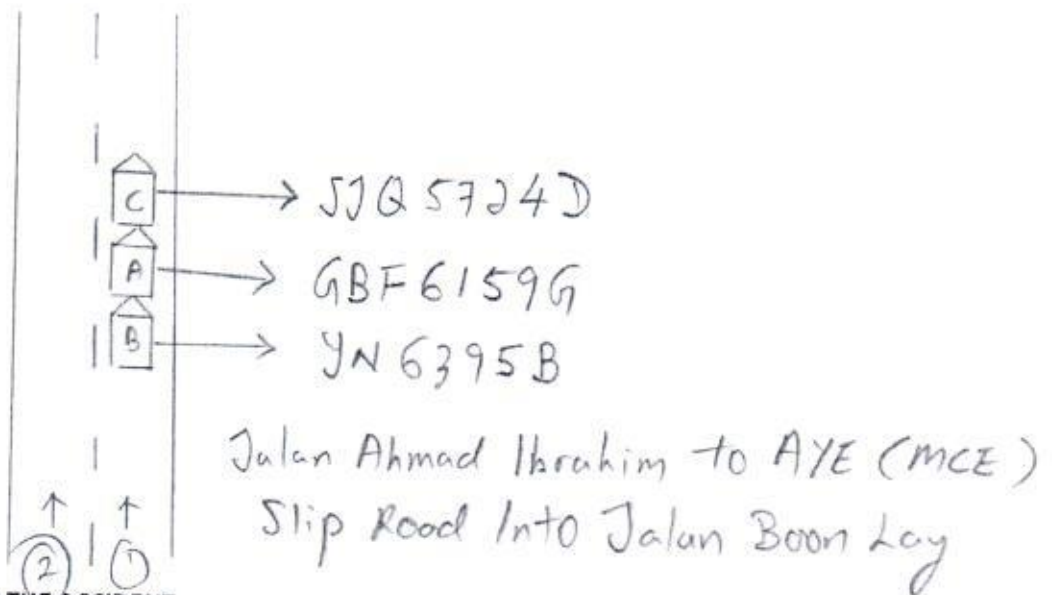 C
SJQ 5724D
A
GBF6159G
B
YN6395B
Jalan Ahmad Ibrahim to AYE (MCE)
Slip Road Into Jalan Boon Lay
2
1